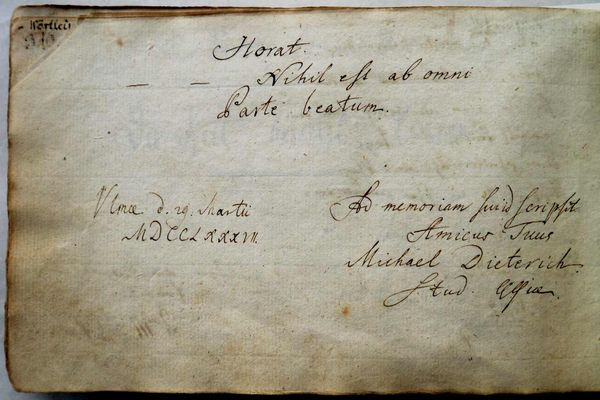 Horat.
— — Nihil est ab omni
Parte beatum.
Ulmae d. 29. Martii
MDCCLXXXVII.
Ad memoriam sui scripsit
Amicus Tuus
Michael Dieterich.
Stud.